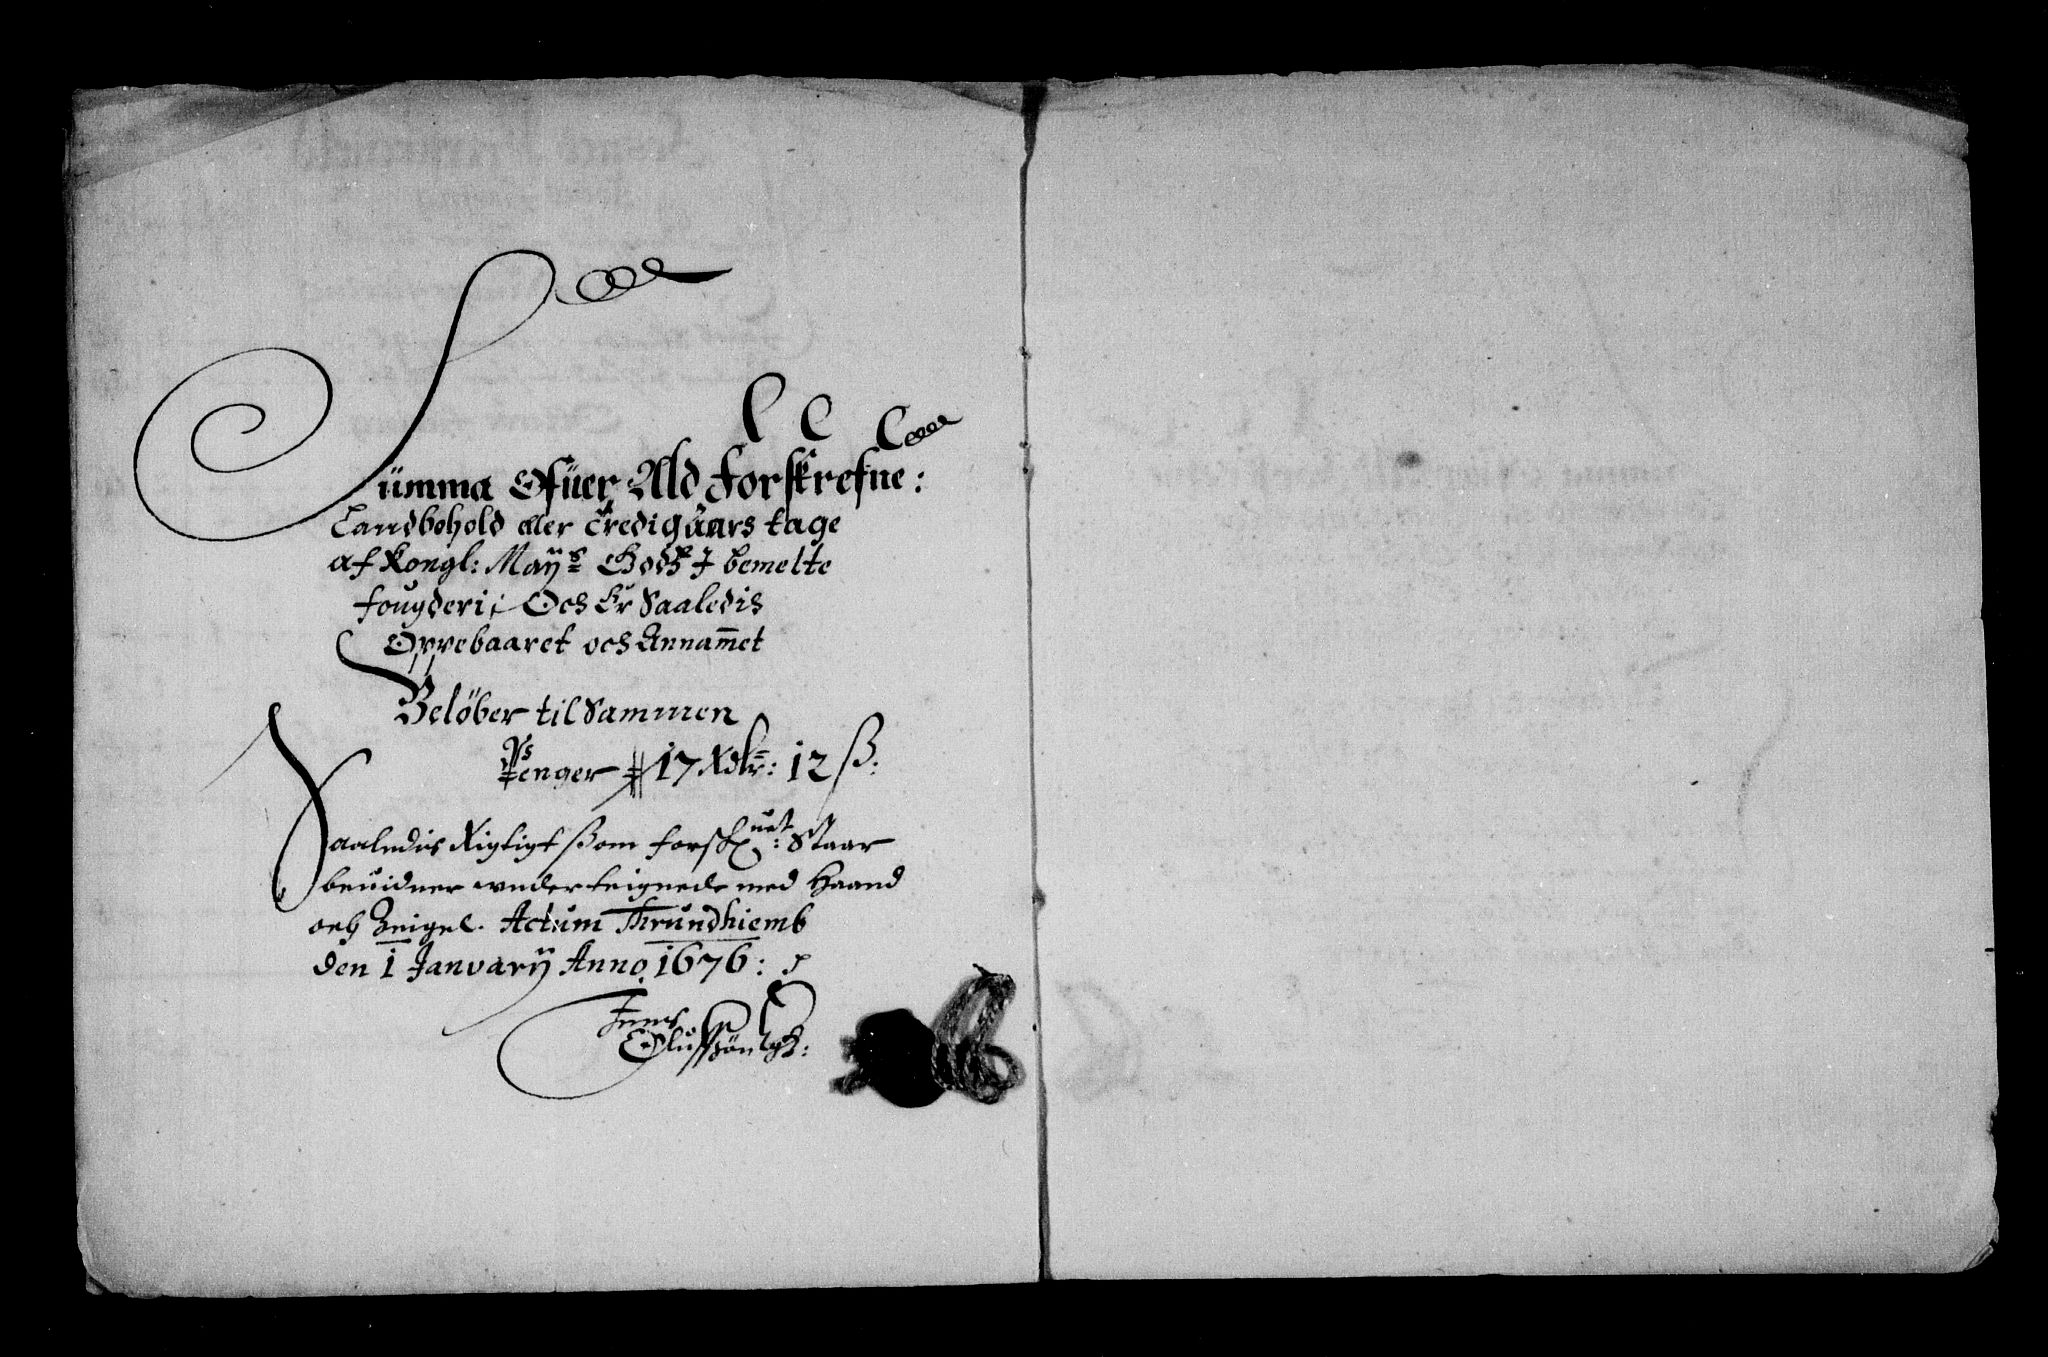 Summa Ofüer Ald Forskrefne:
Landbohold eller Tredigaars tage
af Kongl: Mayᵗˢ Godtz I bemelte
fougderi; Och Er Saaledis
Oppebaaret och Annam̅et
Beløber til Sammen
Penger 17 Rdlr: 12 ß:
Saaledis Rigtigt ßom forskreuet: Staar
beuidner vnderteignede med Haand
och Zeigel. Actum Thrundhiemb
den 1 Januarÿ Anno 1676:
Jens
Olufßön